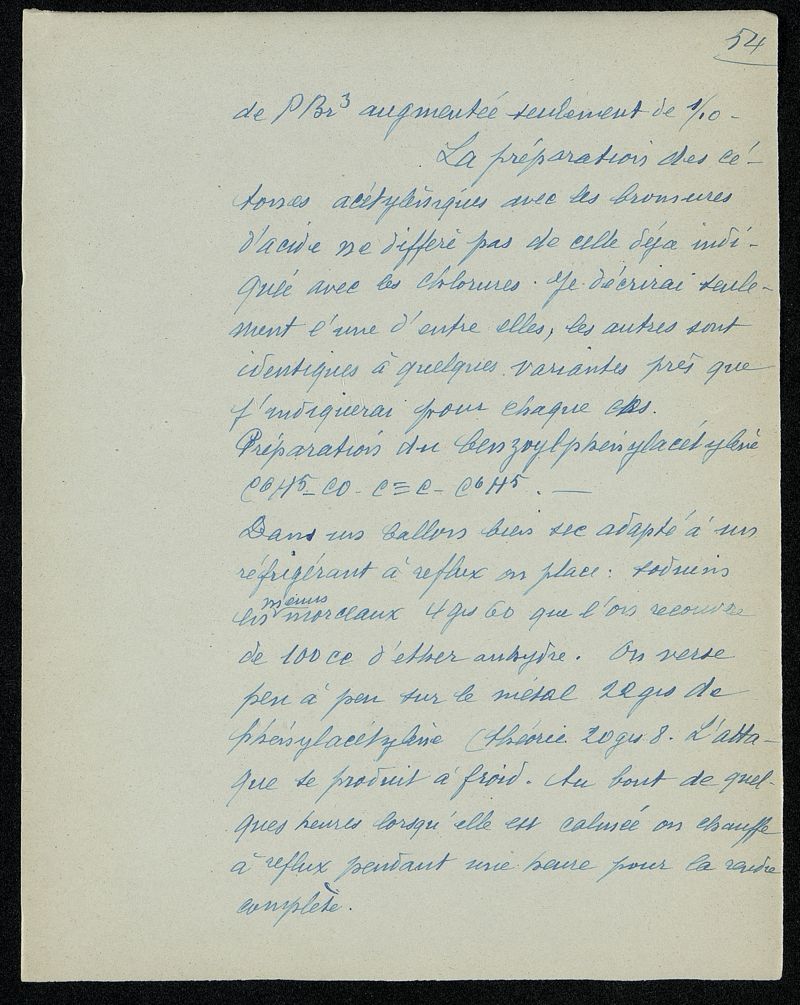 54
de PBr³ augmentée seulement de 1/10 -
La préparation des cé-
tones acétyléniques avec les bromures
d'acide ne diffère pas de celle déjà indi-
quée avec les chlorures. Je décrirai seule-
ment l'une d'entre elles, les autres sont
identiques à quelques variantes près que
j'indiquerai pour chaque cas.
Préparation du benzoylphénylacétylène
C⁶H⁵- CO - C≡C - C⁶H⁵. —
Dans un ballon bien sec adapté à un
réfrigérant à reflux on place : sodium
menus
en morceaux 4grs 60 que l'on recouvre
de 100cc d'ether anhydre. On verse
peu à peu sur le métal 22grs de
phénylacétylène (théorie 20grs 8. L'atta-
que se produit à froid. Au bout de quel-
ques heures lorsqu'elle est calmée on chauffe
à reflux pendant une heure pour la rendre
complète.